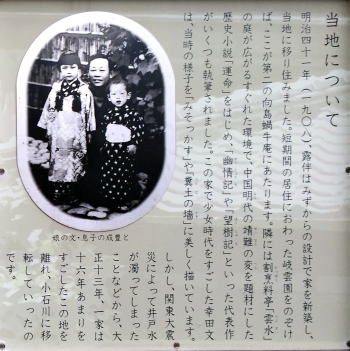 当地について
明治四十一年(一九〇八)、露伴はみずからの設計で家を新築し、
当地に移り住みました。短期間の居住におわった岐雲園をのぞけ
ば、ここが第二の向島蝸牛庵にあたります。隣には割烹料亭「雲水」
の庭が広がるすぐれた環境で、中国明代の靖難の変を題材にした
歴史小説「運命」をはじめ、「幽情記」や「望樹記」といった代表作
がいくつも執筆されました。この家で少女時代をすごした幸田文
は、当時の様子を「みそっかす」や「糞土の墻」に美しく描いています。
しかし、関東大震
災によって井戸水
が濁ってしまった
ことなどから、大
正十三年、一家は
十六年あまりを
すごしたこの地を
離れ、小石川に移
転していったの
です。
娘の文・息子の成豊と